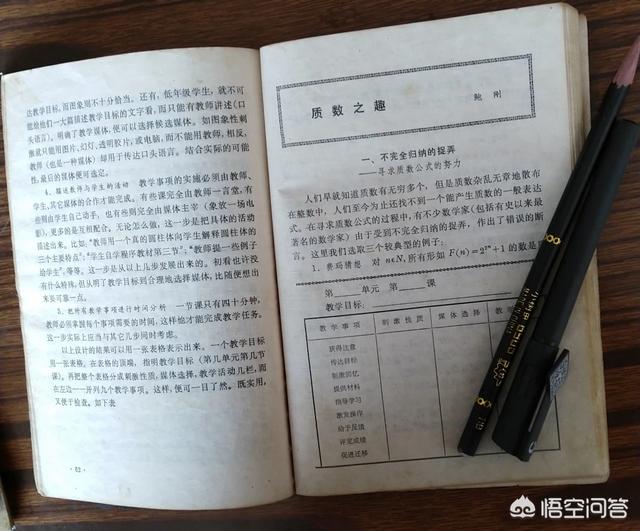 达教学目标,而图象则不十分恰当。还有,低年级学生,就不可
能给他们一大篇描述教学目标的文字看,而只能有教师讲述(口
头语言)。明确了教学媒体,便可以选择候选媒体。如图象性刺
激就只能用图片、幻灯、透明胶片,或电脑,而不能用教师,相反,
教师(也是一种媒体)却用于传达口头语言。结合实际的可能
性,最后的媒体便可选定。
4. 描述教师与学生的活动 教学事项的实施必须由教师、
学生,其它媒体的合作才能完成。有些课完全由教师一言堂,有
些则由学生自己动手,也有些则完全由媒体主宰(象放一场电
影),更多的是互相配合,无论怎么做,这一步是把具体的活动
描述出来。比如:“教师用一个真的圆柱体向学生解释圆柱体的
三个主要特点”;“学生自学程序教材第三节”,“教师提一些例子
给学生”,等等。这一步是从以上几步发展出来的。初看也许没
有什么特殊,但从明了教学目标到合理地选择媒体,比随便想出
来要可靠一点。
5. 把所有教学事项进行时间分析 一节课只有四十分钟,
教师必须掌握每个事项需要的时间,这样他才能完成教学任务。
这一步实际上应当与其它几步同时考虑。
以上设计的结果可以用一张表格表示出来。一个教学目标
用一张表格。在表格的顶端,指明教学目标(第几单元第几节
课)。再把整个表格分成刺激性质,媒体选择,教学活动几栏,而
在左边一开列九个教学事项。这样,便可一目了然。既实用,
又便于检查。如下表
· 62 ·
质数之趣
鲍 刚
一、不完全归纳的捉弄
——寻求质数公式的努力
人们早就知道质数有无穷多个,但是质数杂乱无章地散布
在整数中,人们至今为止还找不到一个能产生质数的一般表达
式。在寻求质数公式的过程中,有不少数学家(包括有史以来最
著名的数学家)由于受到不完全归纳的捉弄,作出了错误的断
言。这里我们选取三个较典型的例子:
1. 费玛猜想 对 n∈N,所有形如 F(n)=2^{2^n}+1 的数是
第 单元 第 课
教学目标:
教学事项 刺激性质 媒体选择 教
获得注意
传达目标
刺激回忆
提供材料
指导学习
激发操作
给予反馈
评定成绩
促进迁移
悟空问答